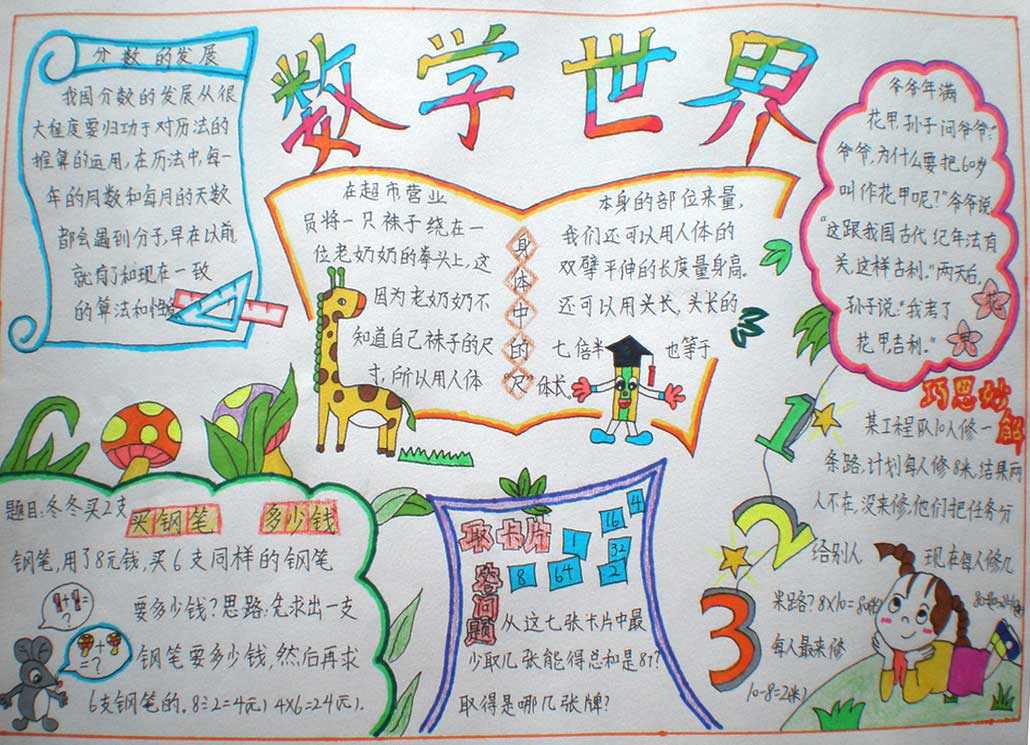 数学世界
分数的发展
我国分数的发展从很
大程度要归功于对历法的
推算的运用,在历法中,每一
年的月数和每月的天数
都会遇到分子,早在以前
就有了和现在一致
的算法和
在超市营业
员将一只袜子绕在一
位老奶奶的拳头上,这
因为老奶奶不
知道自己袜子的尺
寸,所以用人体
身体中的“尺”
本身的部位来量,
我们还可以用人体的
双臂平伸的长度量身高。
还可以用头长,头长的
七倍半 也等于
体长。
爷爷年满
花甲,孙子问爷爷:“
爷爷,为什么要把60岁
叫作花甲呢?”爷爷说
“这跟我国古代纪年法有
关,这样吉利。”两天后,
孙子说:“我考了
花甲,吉利。”
花
甲
巧思妙解
某工程队10人修一
条路,计划每人修8米,结果两
人不在,没来修,他们把任务分
给别人 现在每人修几
米路?8×10=80(米)
每人最来修
10-8=2(米)
1
2
3
买钢笔 多少钱
题目:冬冬买2支
钢笔,用了8元钱,买6支同样的钢笔
要多少钱?思路:先求出一支
钢笔要多少钱,然后再求
6支钢笔的。8÷2=4(元) 4×6=24(元).
+ =
?
+
=?
取卡片
答问题
1 16 4
8 64 32
2
从这七张卡片中最
少取几张能得总和是87?
取得是哪几张牌?